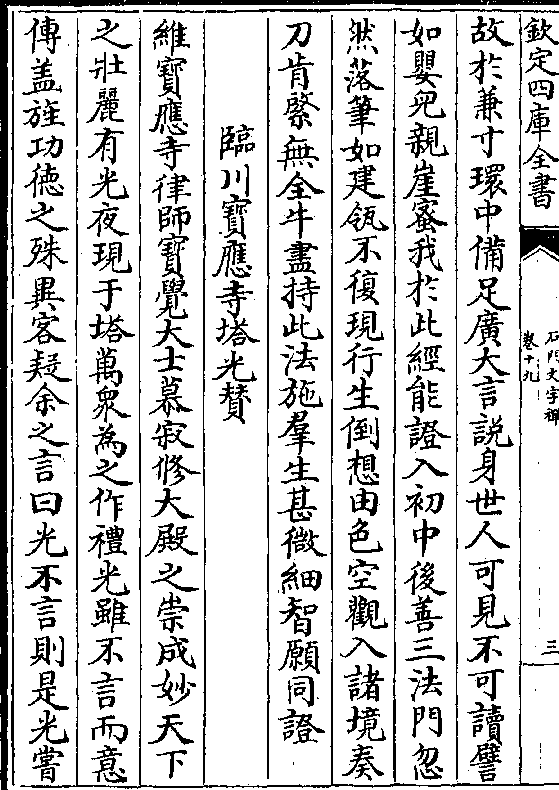 欽定四庫全書
石門文字禪
卷十九
三
故於兼寸環中備足廣大言説身世人可見不可讀譬
如嬰兒親崖蜜我於此經能證入初中後善三法門忽
然落筆如建瓴不復現行生倒想由色空觀入諸境奏
刀肯綮無全牛盡持此法施羣生甚微細智願同證
臨川寶應寺塔光贊
維寶應寺律師寶覺大士慕寂修大殿之崇成妙天下
之壯麗有光夜現于塔萬衆為之作禮光雖不言而意
傳盖旌功徳之殊異客疑余之言曰光不言則是光嘗